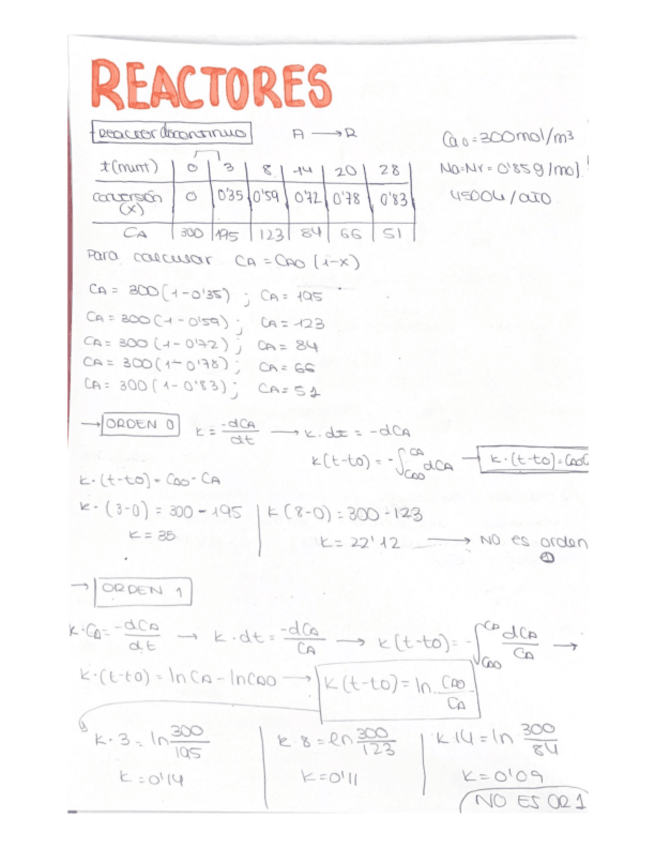 REACTORES
Reactor discontinuo A → R Ca0 = 300mol/m³
t(min) 0 3 8 14 20 28 Na=Nr = 0'859/mol
conversión (x) 0 0'35 0'59 0'72 0'78 0'83
CA 300 195 123 84 66 51
Para calcular CA = CAO (1-x)
CA = 300(1-0'35) ; CA = 195
CA = 300(1-0'59) ; CA = 123
CA = 300 (1-0'72) ; CA = 84
CA = 300(1-0'78) ; CA = 66
CA = 300 (1-0'83) ; CA = 51
→ ORDEN 0 k = -dCA/dt → k·dt = -dCA
k(t-to) = -∫CAO CA dCA → k·(t-to)=CAO
k·(t-to) = CAO - CA
k·(3-0) = 300 - 195 k(8-0) = 300-123
k = 35 k = 22'12 → NO es orden
→ ORDEN 1
k·CA = -dCA/dt → k·dt = -dCA/CA → k(t-to) = -∫CAO CA dCA/CA →
k·(t-to) = ln CA - ln CAO → k(t-to) = ln CAO/CA
k·3 = ln 300/195 k·8 = ln 300/123 k·14 = ln 300/84
k = 0'14 k = 0'11 k = 0'09
NO ES OR 1